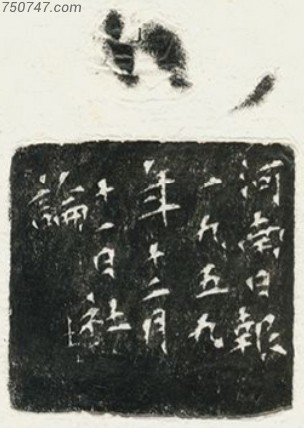 750747.com
河南日報
一九五九
年十二月
十一日社
論